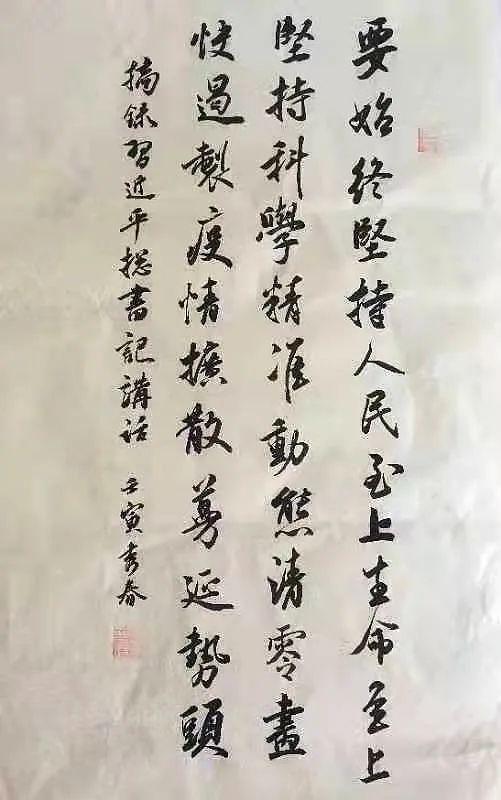 要始終堅持人民至上生命至上
堅持科學精准動態清零盡
快遏製疫情擴散蔓延勢頭
摘錄習近平總書記講話 壬寅秀春